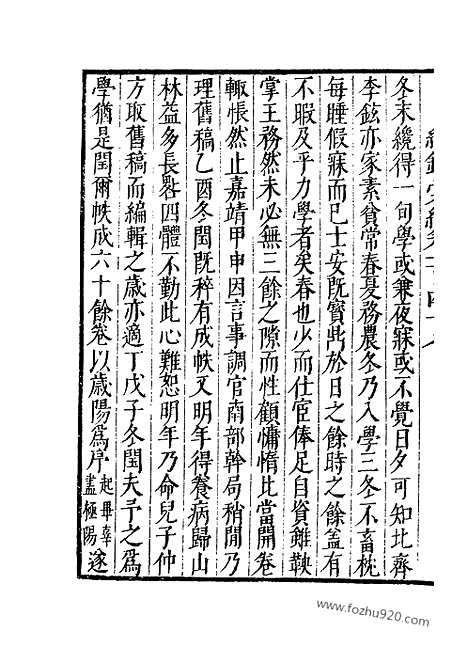 冬末纔得一句學或兼夜寐或不覺日夕可知北齊
李鉉亦家素貧常春夏務農冬乃入學三冬不畜枕
每睡假寐而已士安既寳此於日之餘時之餘蓋有
不暇及乎力學者矣春也少而仕宦俸足自資雖鞅
掌王務然未必無三餘之隙而性顧慵惰比當開卷
輙悵然止嘉靖甲申因言事調官南部幹局稍閒乃
理舊稿乙酉冬閏既稡有成帙又明年得養病歸山
林益多長晷四體不勤此心難恕明年乃命兒子仲
方取舊稿而編輯之歳亦適丁戊子冬閏夫予之爲
學猶是閏爾帙成六十餘卷以歳陽爲序起畢辜盡極陽遂
www.fozhu920.com